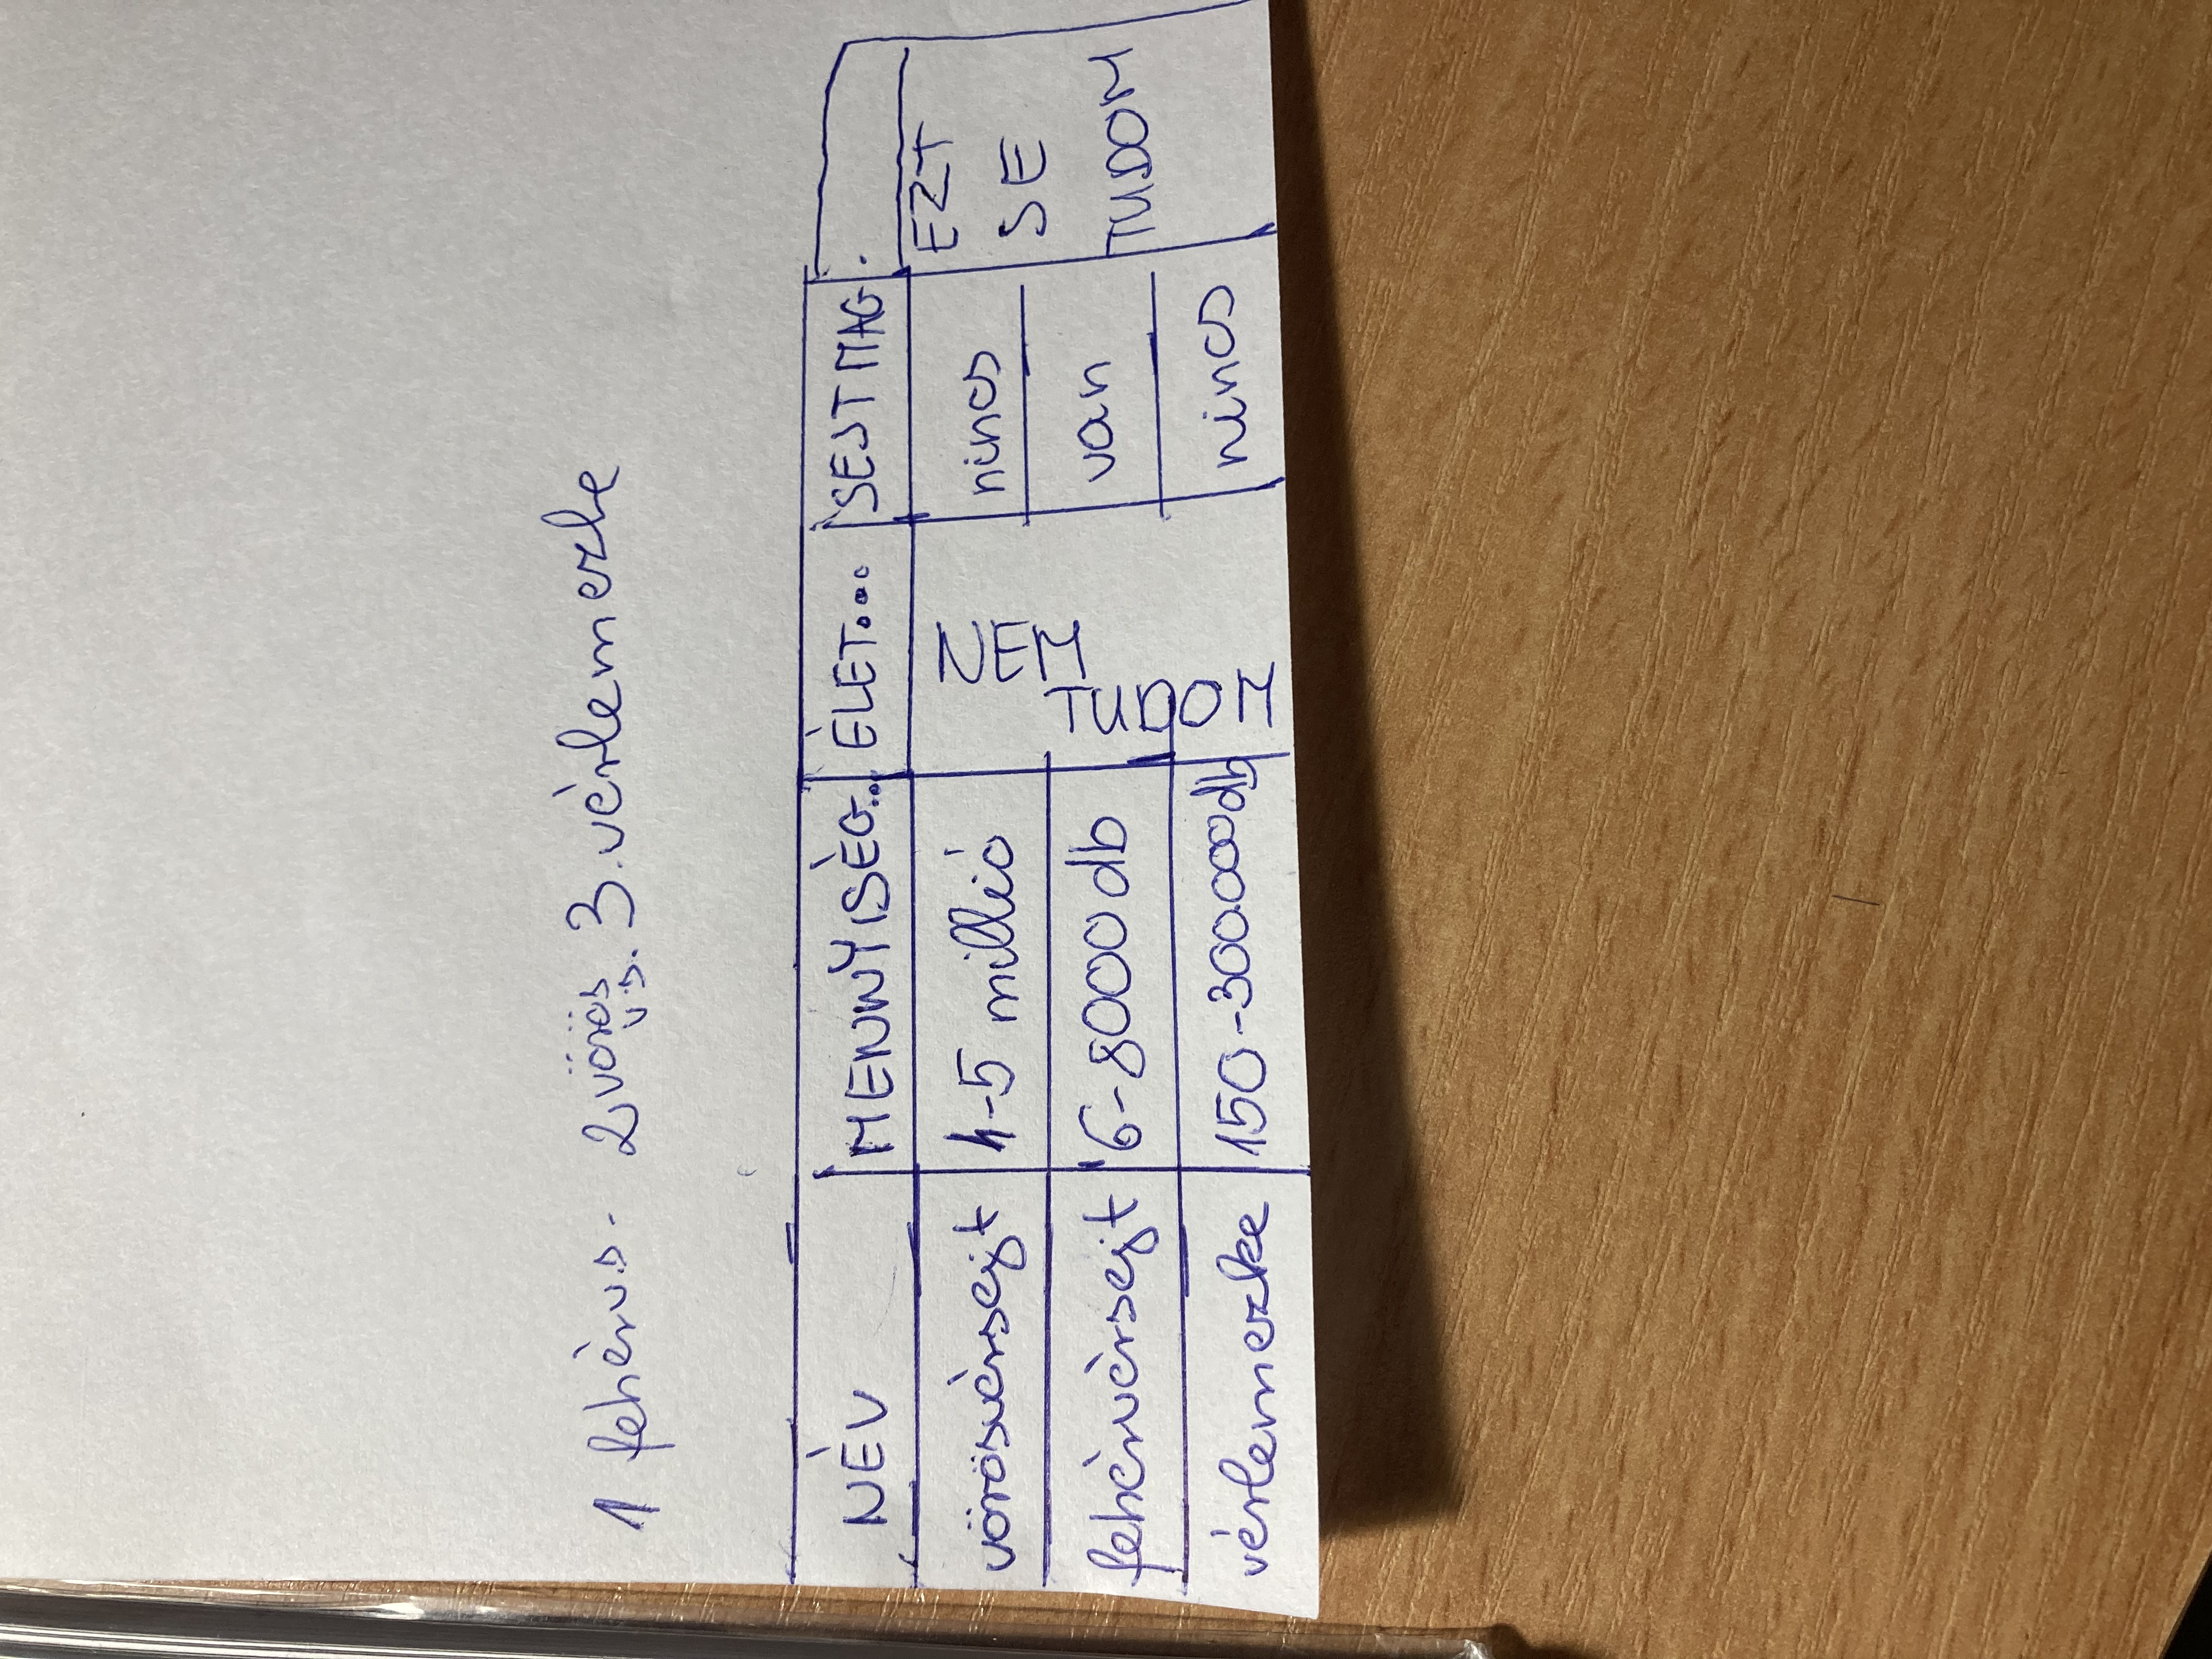 1 fehérvs. 2 vörös vs. 3. vérlemezke
NÉV MENNYISÉG... ÉLET... SEJTMAG.
vörösvérsejt 4-5 millió NEM TUDOM nincs EZT SE TUDOM
fehérvérsejt 6-8000 db van
vérlemezke 150-300.000db nincs